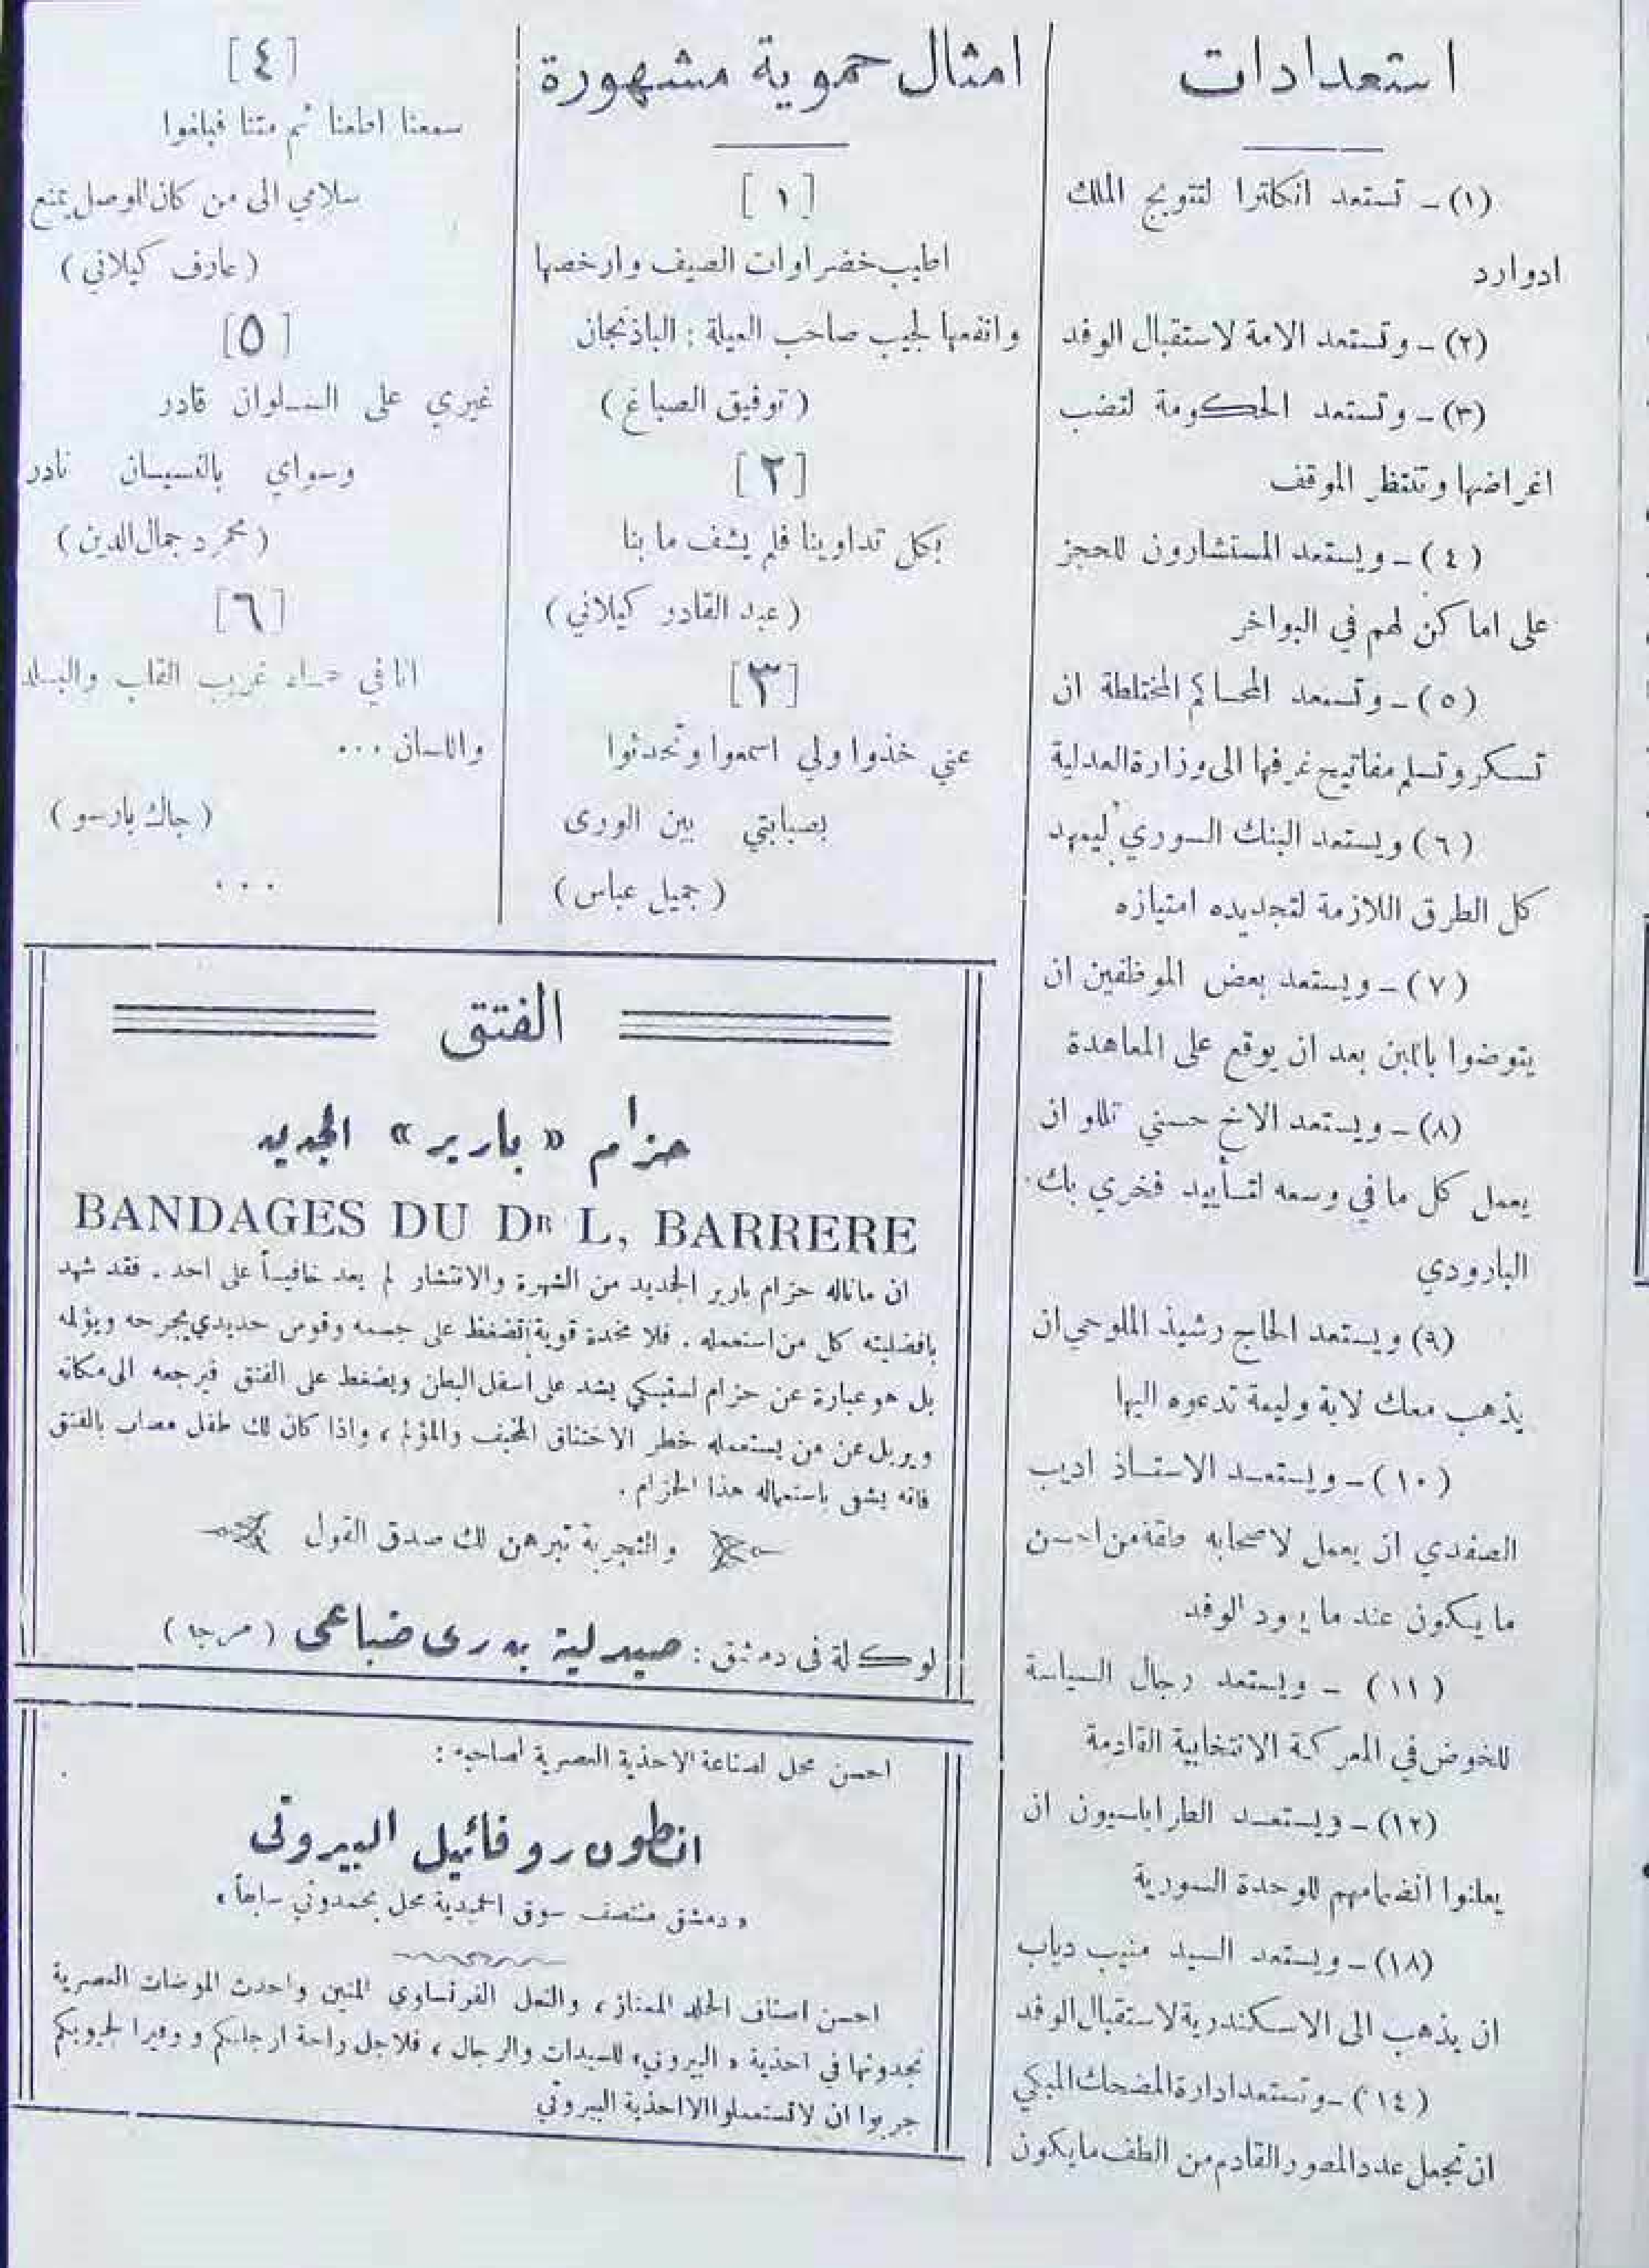 استعدادات
(١) ـ تستعد انكلترا لتتويج الملك
ادوارد
(٢) ـ وتستعد الامة لاستقبال الوفد
(٣) ـ وتستعد الحكومة لتضب
اغراضها وتنتظر الموقف
(٤) ـ ويستعد المستشارون للحجز
على اماكن لهم في البواخر
(٥) ـ وتستعد المحاكم المختلطة ان
تسكر وتسلم مفاتيح غرفها الى وزارة العدلية
(٦) ويستعد البنك السوري ليمهد
كل الطرق اللازمة لتجديده امتيازه
(٧) ـ ويستعد بعض الموظفين ان
يتوضوا باللبن بعد ان يوقع على المعاهدة
(٨) ـ ويستعد الاخ حسني تللو ان
يعمل كل ما في وسعه لتأييد فخري بك
البارودي
(٩) ويستعد الحاج رشيد الملوحي ان
يذهب معك لاية وليمة تدعوه اليها
(١٠) ـ ويستعد الاستاذ اديب
الصفدي ان يعمل لاصحابه طقة من احسن
ما يكون عند ما يعود الوفد
(١١) ـ ويستعد رجال السياسة
للخوض في المعركة الانتخابية القادمة
(١٢) ـ ويستعد الطرابلسيون ان
يعلنوا انضمامهم للوحدة السورية
(١٨) ـ ويستعد السيد منيب دياب
ان يذهب الى الاسكندرية لاستقبال الوفد
(١٤) ـ وتستعد ادارة المضحك المبكي
ان تجعل عدد المصور القادم من الطف ما يكون
امثال حموية مشهورة
[١]
اطيب خضراوات الصيف وارخصها
وانفعها لجيب صاحب العيلة : الباذنجان
(توفيق الصباغ)
[٢]
بكل تداوينا فلم يشف ما بنا
(عبد القادر كيلاني)
[٣]
عني خذوا ولي اسمعوا وتحدثوا
بصبابتي بين الورى
(جميل عباس)
[٤]
سمعنا اطعنا ثم متنا فبلغوا
سلامي الى من كان للوصل يمنع
(عارف كيلاني)
[٥]
غيري على السلوان قادر
وسواي بالنسيان نادر
(محمود جمال الدين)
[٦]
انا في حماه غريب القلب والبلد
واللسان ...
(جاك بارسو)
...
الفتق
حزام «بارير» الجديد
BANDAGES DU DR L, BARRERE
ان ماناله حزام بارير الجديد من الشهرة والانتشار لم يعد خافياً على احد . فقد شهد
بافضليته كل من استعمله . فلا مخدة قوية تضغط على جسمه وقوس حديدي يجرحه ويؤلمه
بل هو عبارة عن حزام لستيكي يشد على اسفل البطن ويضغط على الفتق فيرجعه الى مكانه
ويزيل عن من يستعمله خطر الاختناق المخيف والمؤلم ، واذا كان لك طفل مصاب بالفتق
فانه يشفى باستعماله هذا الحزام .
والتجربة تبرهن لك صدق القول
لوكالة في دمشق : صيدلية بدري ضباعي (مرجة)
احسن محل لصناعة الاحذية العصرية لصاحبه :
انطون روفائيل البيروتي
«دمشق منتصف سوق الحميدية محل بحمدوني سابقاً»
احسن اصناف الجلد الممتاز ، والنعل الفرنساوي المتين واحدث الموضات العصرية
تجدونها في احذية «البيروتي» للسيدات والرجال ، فلاجل راحة ارجلكم ووفيرا لجيوبكم
جربوا ان لا تستعملوا الا احذية البيروتي